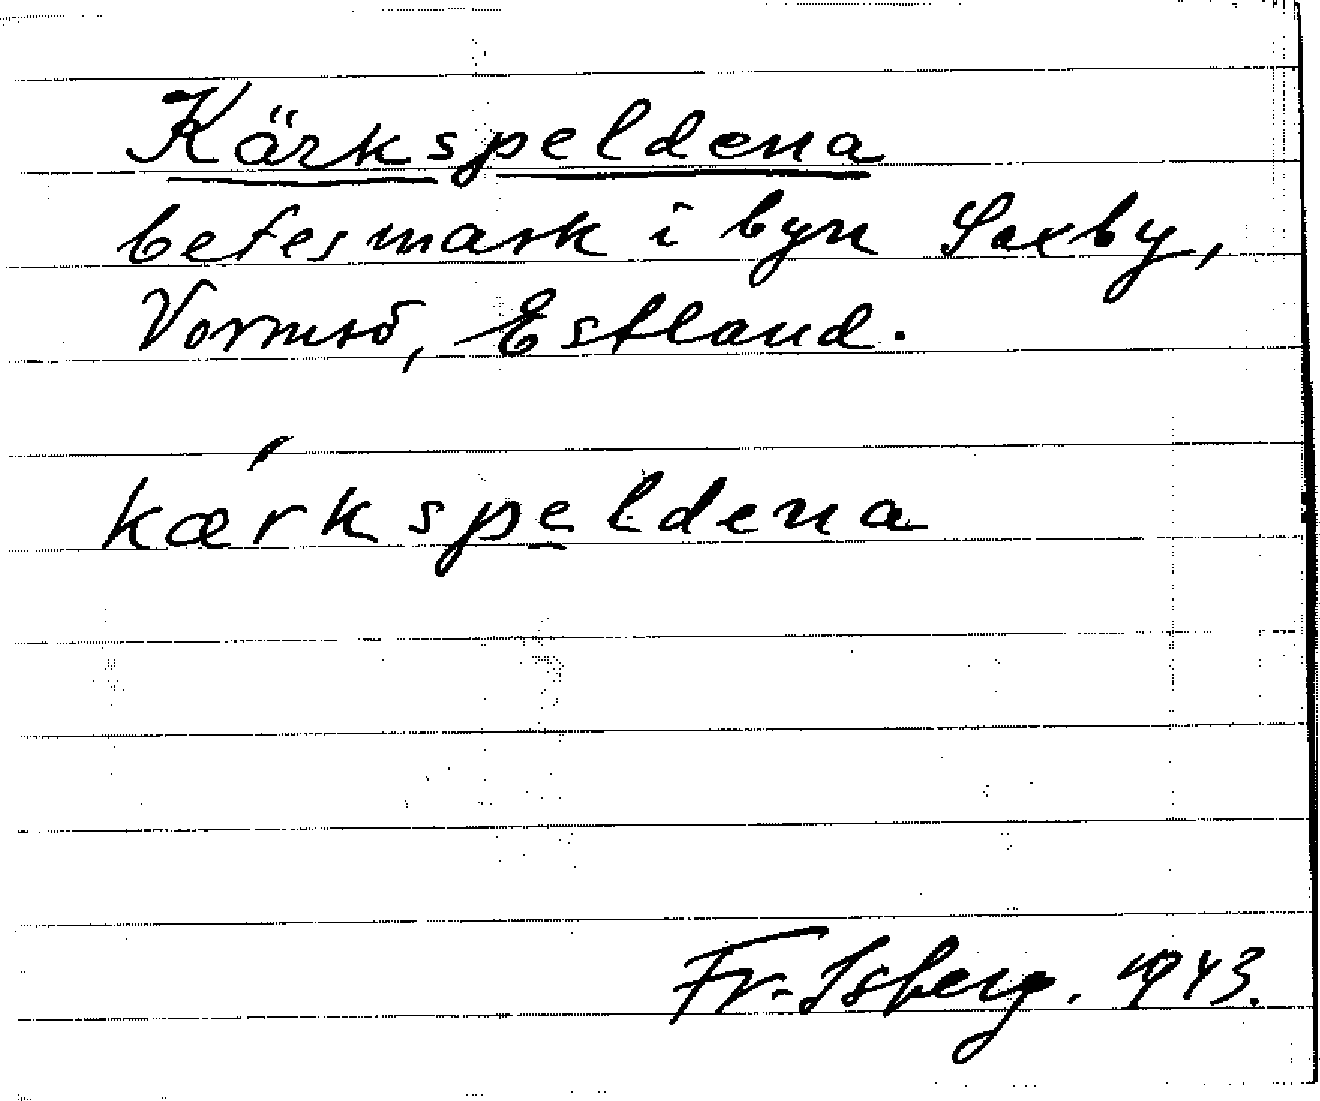 Kärkspeldena
betesmark i byn Saxby,
Vormsö, Estland.
kærkspeldena
Fr. Isberg. 1943.